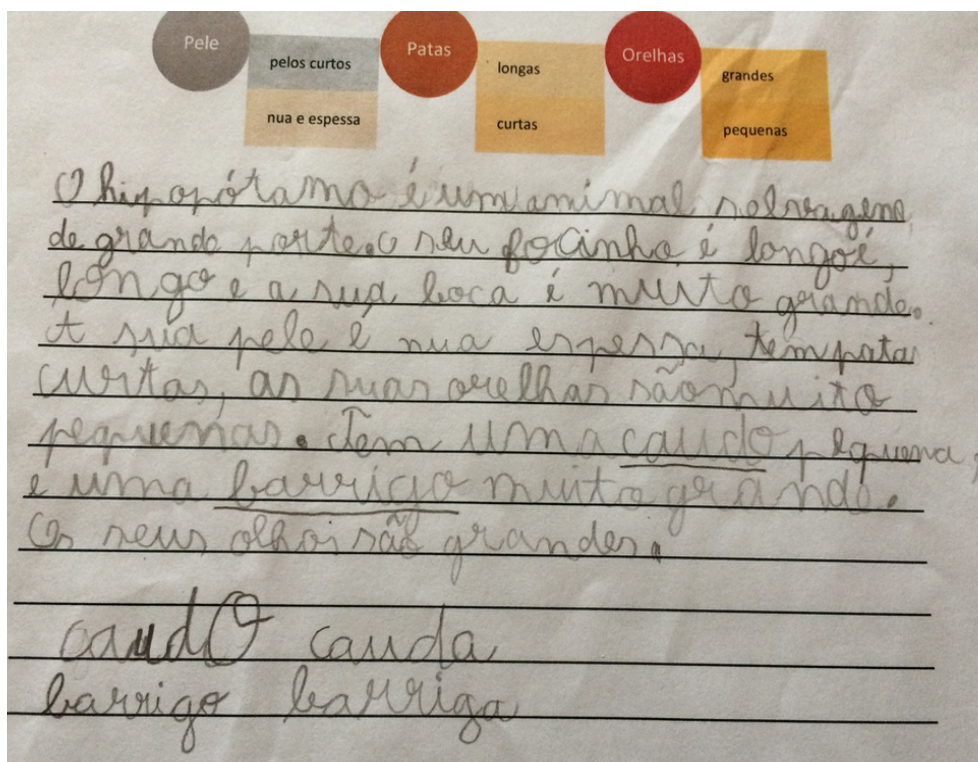 Pele
pelos curtos
nua e espessa
Patas
longas
curtas
Orelhas
grandes
pequenas
O hipopótamo é um animal selvagem
de grande porte. O seu focinho é longo é,
longo e a sua boca é muito grande.
A sua pele é nua espessa, tem pata
curtas, as suas orelhas são muito
pequenas. Tem uma caudo pequena,
e uma barrigo muito grande.
Os seus olhos são grandes.
caudO cauda
barrigo barriga